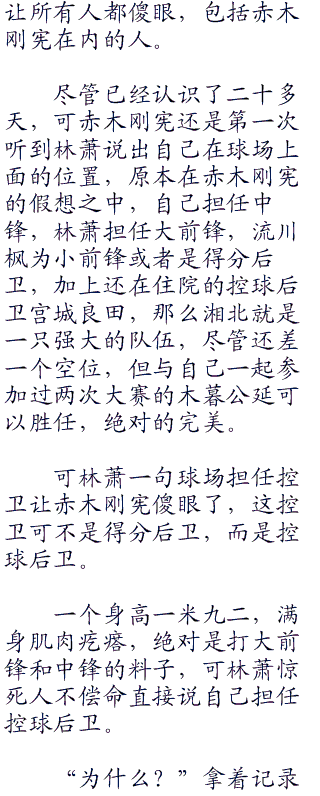 让所有人都傻眼，包括赤木
刚宪在内的人。
尽管已经认识了二十多
天，可赤木刚宪还是第一次
听到林萧说出自己在球场上
面的位置，原本在赤木刚宪
的假想之中，自己担任中
锋，林萧担任大前锋，流川
枫为小前锋或者是得分后
卫，加上还在住院的控球后
卫宫城良田，那么湘北就是
一只强大的队伍，尽管还差
一个空位，但与自己一起参
加过两次大赛的木暮公延可
以胜任，绝对的完美。
可林萧一句球场担任控
卫让赤木刚宪傻眼了，这控
卫可不是得分后卫，而是控
球后卫。
一个身高一米九二，满
身肌肉疙瘩，绝对是打大前
锋和中锋的料子，可林萧惊
死人不偿命直接说自己担任
控球后卫。
“为什么？”拿着记录